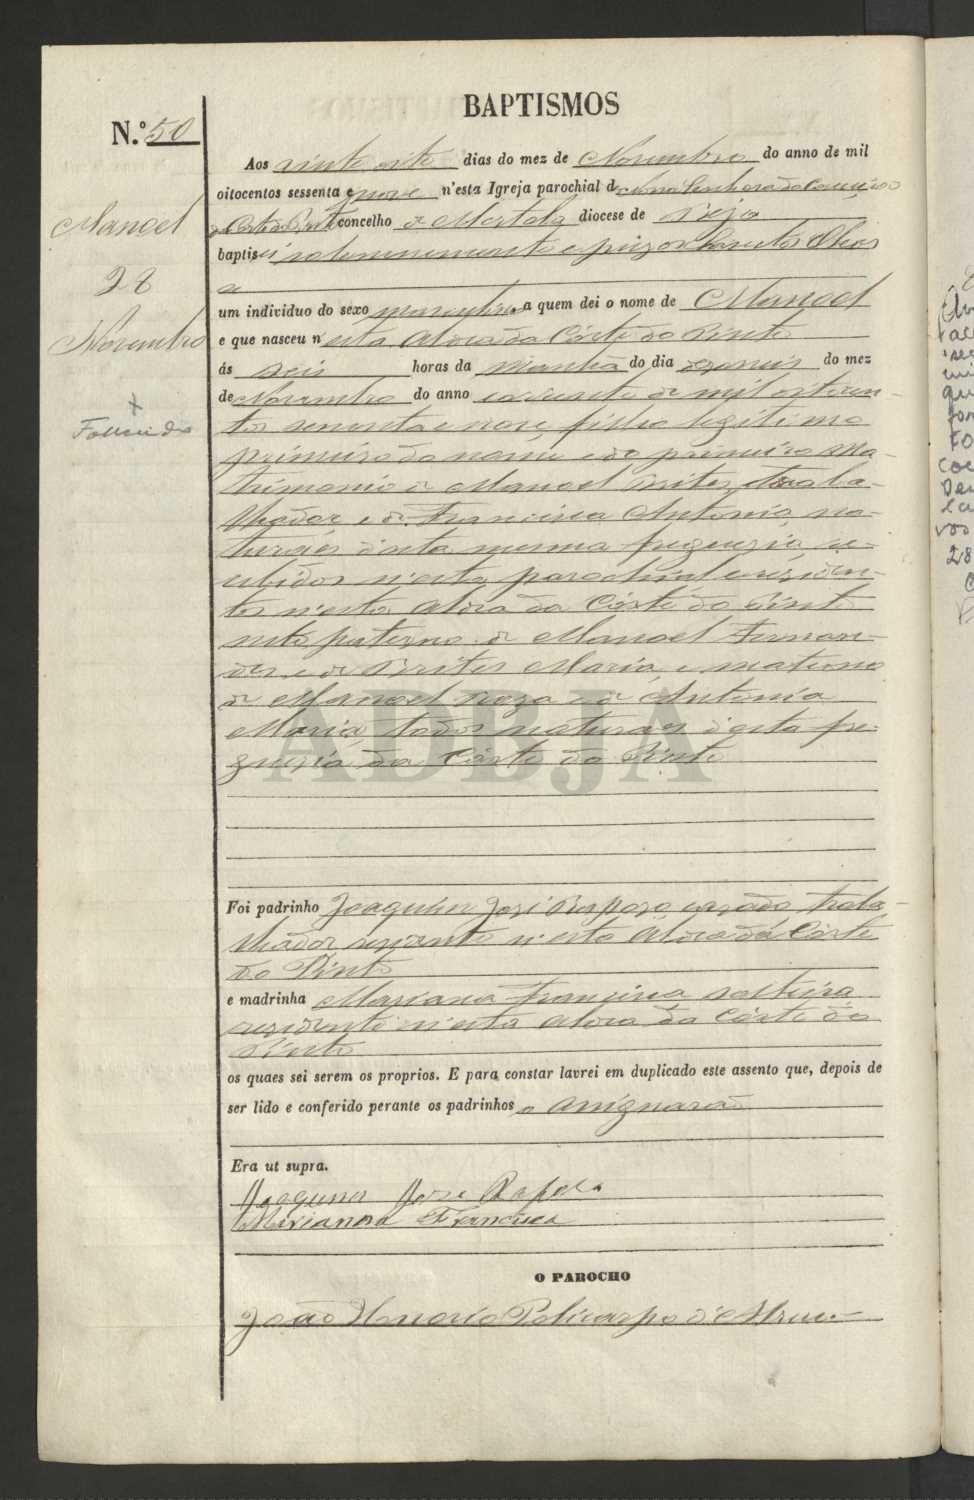 BAPTISMOS
N.º 50
Manoel
28
Novembro
+
Fallecido
Aos vinte oito dias do mez de Novembro do anno de mil
oitocentos sessenta e nove n'esta Igreja parochial de Nossa Senhora da Conceição
da Corte do Pinto concelho de Mertola diocese de Beja
baptisei solemnemente e puz os Santos Oleos
a
um individuo do sexo masculino a quem dei o nome de Manoel
e que nasceu n'esta Aldea da Côrte do Pinto
ás seis horas da Manhã do dia do mez
de Novembro do anno corrente de mil oitocen-
tos sessenta e nove filho legitimo
primeiro do nome e do primeiro Ma-
trimonio de Manoel Brites, Traba-
lhador e de Francisca Antonia, na-
turaes d'esta mesma freguezia re-
cebidos n'esta parochial e residen-
tes n'esta Aldea da Côrte do Pinto
neto paterno de Manoel Fernan-
des, e de Brites Maria, e materno
de Manoel e de Antonia
Maria, todos naturaes d'esta fre-
guezia da Côrte do Pinto
Foi padrinho Joaquim José Raposo casado traba-
lhador n'esta Aldea da Côrte
do Pinto
e madrinha Mariana Francisca solteira
residente n'esta Aldea da Côrte do
Pinto
os quaes sei serem os proprios. E para constar lavrei em duplicado este assento que, depois de
ser lido e conferido perante os padrinhos o assignarão
Era ut supra.
Joaquim Jose Rapozo
Marianna Francisca
O PAROCHO
João Honorio Policarpo d'Abreu
ADBJA